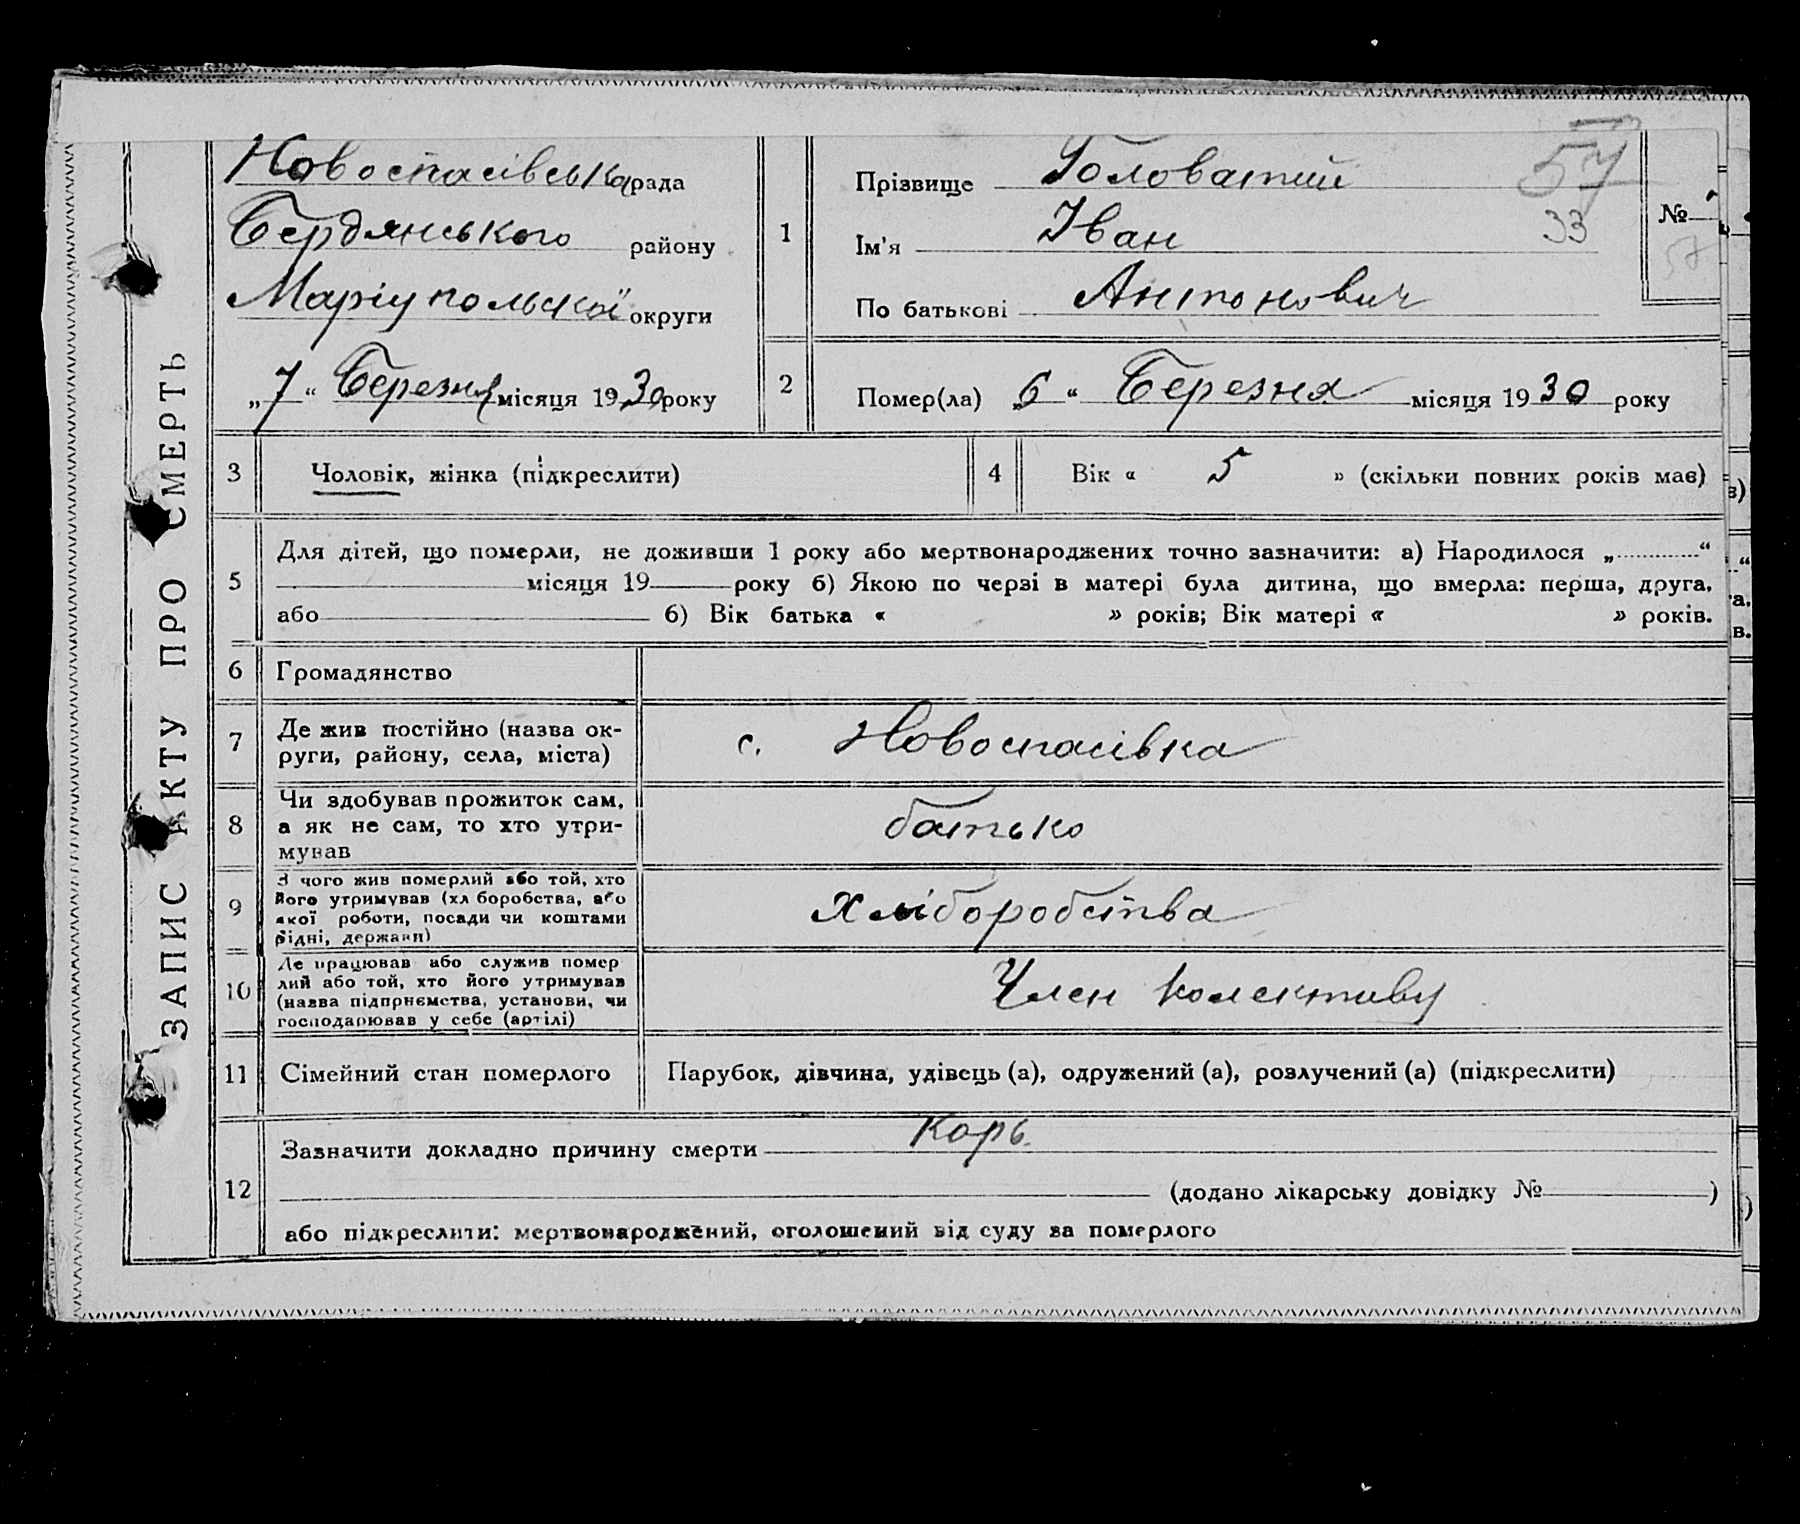 ЗАПИС АКТУ ПРО СМЕРТЬ
Новоспасівська рада
Бердянського району
Маріупольскої округи
„7“ Березня місяця 1930 року
1
Прізвище Головатий
Ім'я Іван
По батькові Антонович
57
33
№
57
2
Помер(ла) „6“ Березня місяця 1930 року
3
Чоловік, жінка (підкреслити)
4
Вік « 5 » (скільки повних років має)
5
Для дітей, що померли, не доживши 1 року або мертвонароджених точно зазначити: а) Народилося „ “
місяця 19 року б) Якою по черзі в матері була дитина, що вмерла: перша, друга,
або б) Вік батька « » років; Вік матері « » років.
6
Громадянство
7
Де жив постійно (назва ок-
руги, району, села, міста)
с. Новоспасівка
8
Чи здобував прожиток сам,
а як не сам, то хто утри-
мував
батько
9
З чого жив померлий або той, хто
його утримував (хл боробства, або
якої роботи, посади чи коштами
рідні, держави)
хліборобства
10
Де працював або служив помер
лий або той, хто його утримував
(назва підпрнємства, установи, чи
господарював у себе (артілі)
Член колективу
11
Сімейний стан померлого
Парубок, дівчина, удівець (а), одружений (а), розлучений (а) (підкреслити)
12
Зазначити докладно причину смерти Корь
(додано лікарську довідку № )
або підкреслити: мертвонароджений, оголошений від суду за померлого